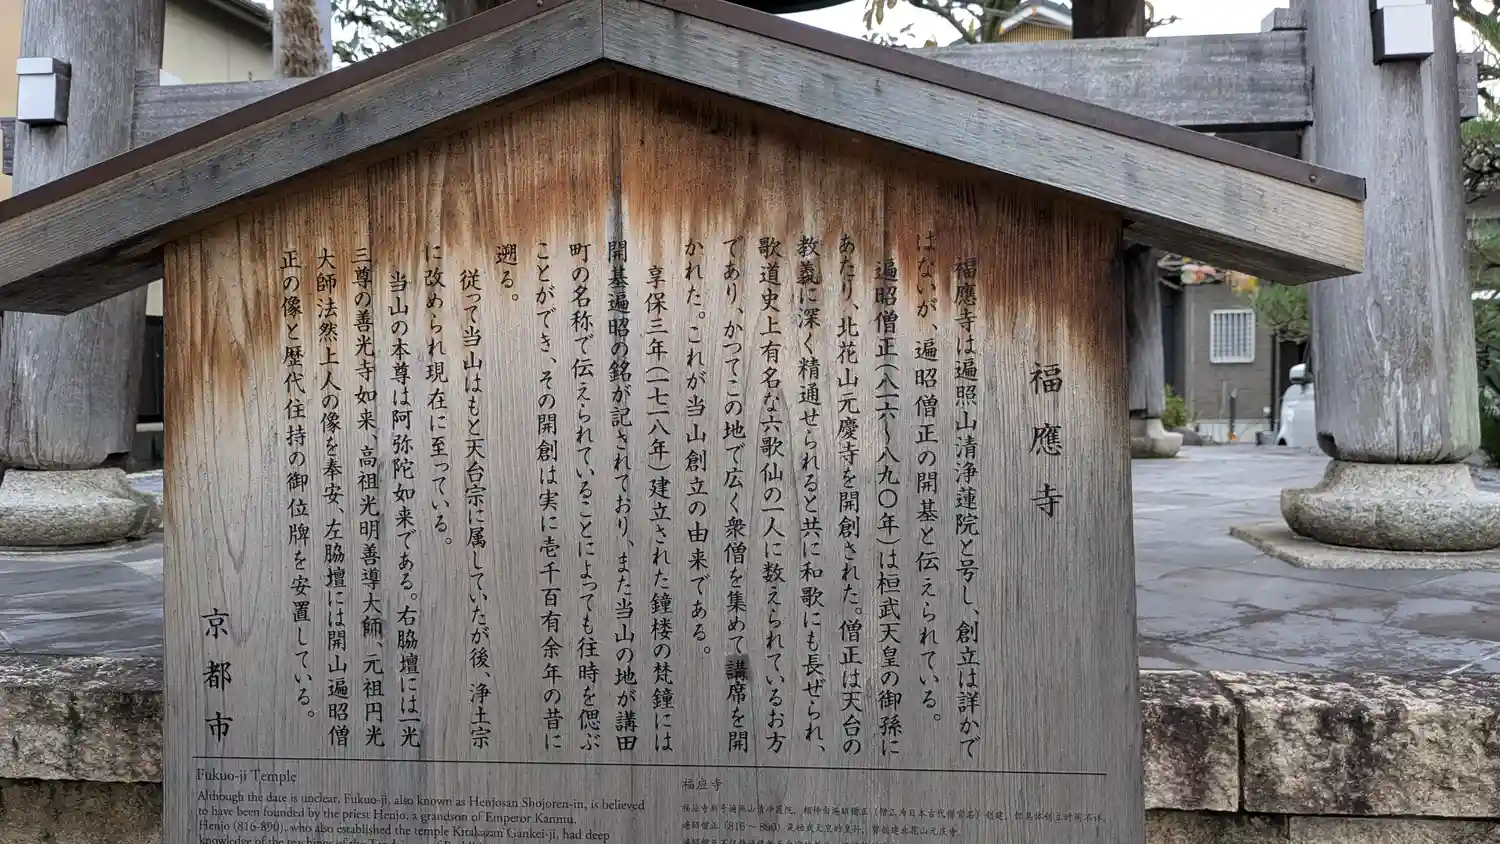 福應寺
福應寺は遍照山清浄蓮院と号し、創立は詳かで
はないが、遍昭僧正の開基と伝えられている。
遍昭僧正(八一六〜八九〇年)は桓武天皇の御孫に
あたり、北花山元慶寺を開創された。僧正は天台の
教義に深く精通せられると共に和歌にも長ぜられ、
歌道史上有名な六歌仙の一人に数えられているお方
であり、かつてこの地で広く衆僧を集めて講席を開
かれた。これが当山創立の由来である。
享保三年(一七一八年)建立された鐘楼の梵鐘には
開基遍昭の銘が記されており、また当山の地が講田
町の名称で伝えられていることによっても往時を偲ぶ
ことができ、その開創は実に壱千百有余年の昔に
遡る。
従って当山はもと天台宗に属していたが後、浄土宗
に改められ現在に至っている。
当山の本尊は阿弥陀如来である。右脇壇には一光
三尊の善光寺如来、高祖光明善導大師、元祖円光
大師法然上人の像を奉安、左脇壇には開山遍昭僧
正の像と歴代住持の御位牌を安置している。
京都市
Fukuo-ji Temple
Although the date is unclear, Fukuo-ji, also known as Henjosan Shojoren-in, is believed
to have been founded by the priest Henjo, a grandson of Emperor Kanmu.
Henjo (816-890), who also established the temple Kitakazan Gankei-ji, had deep
knowledge of the teachings of the
福应寺